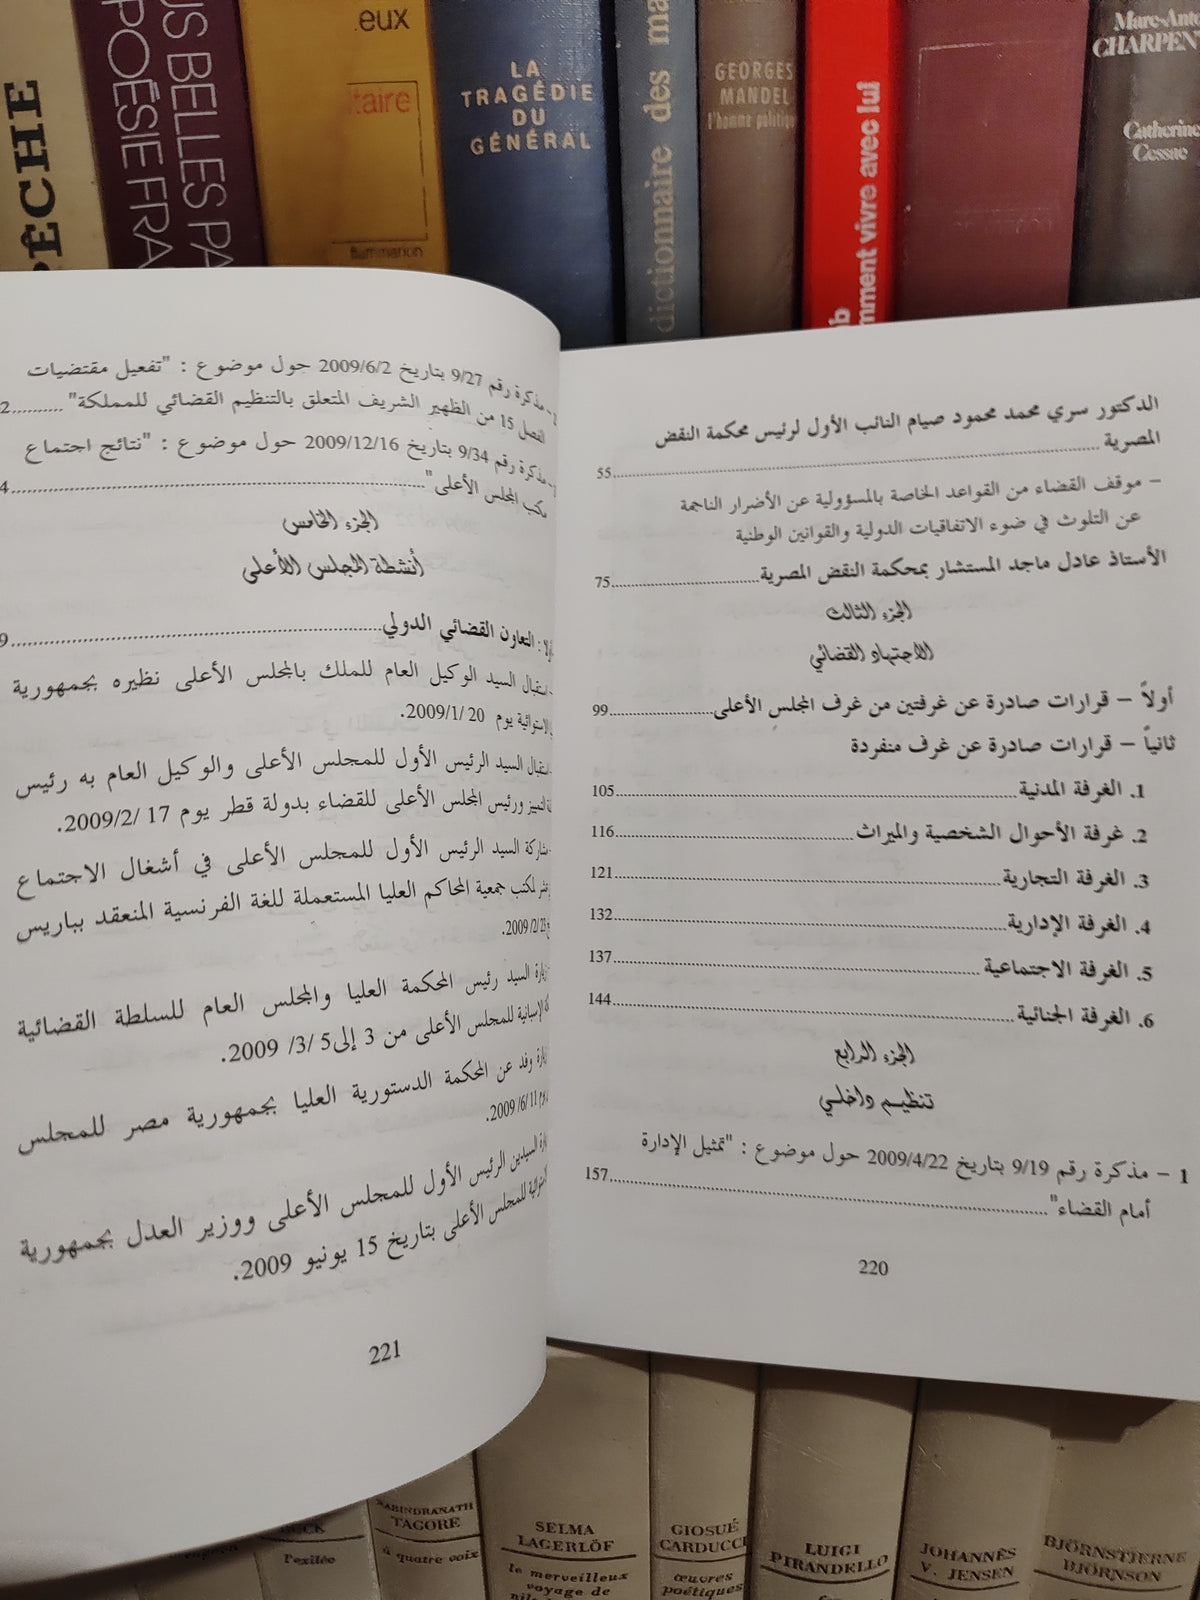 PÊCHE
US BELLES PA
POÉSIE FRA
eux
taire
flammarion
LA
TRAGÉDIE
DU
GÉNÉRAL
dictionnaire des ma
GEORGES
MANDEL
l'homme politique
mment vivre avec lui
Marc-Anto
CHARPEN
Catherine
Cessac
الدكتور سري محمد محمود صيام النائب الأول لرئيس محكمة النقض
المصرية 55
– موقف القضاء من القواعد الخاصة بالمسؤولية عن الأضرار الناجمة
عن التلوث في ضوء الاتفاقيات الدولية والقوانين الوطنية
الأستاذ عادل ماجد المستشار بمحكمة النقض المصرية 75
الجزء الثالث
الاجتهاد القضائي
أولاً – قرارات صادرة عن غرفتين من غرف المجلس الأعلى 99
ثانياً – قرارات صادرة عن غرف منفردة
1. الغرفة المدنية 105
2. غرفة الأحوال الشخصية والميراث 116
3. الغرفة التجارية 121
4. الغرفة الإدارية 132
5. الغرفة الاجتماعية 137
6. الغرفة الجنائية 144
الجزء الرابع
تنظيم داخلي
1 – مذكرة رقم 9/19 بتاريخ 2009/4/22 حول موضوع : "تمثيل الإدارة
أمام القضاء" 157
220
مذكرة رقم 9/27 بتاريخ 2009/6/2 حول موضوع : "تفعيل مقتضيات
الفصل 15 من الظهير الشريف المتعلق بالتنظيم القضائي للمملكة" 2
مذكرة رقم 9/34 بتاريخ 2009/12/16 حول موضوع : "نتائج اجتماع
مكتب المجلس الأعلى" 4
الجزء الخامس
أنشطة المجلس الأعلى
: التعاون القضائي الدولي 9
استقبال السيد الوكيل العام للملك بالمجلس الأعلى نظيره بجمهورية
يوم 20 /2009/1.
استقبال السيد الرئيس الأول للمجلس الأعلى والوكيل العام به رئيس
التمييز ورئيس المجلس الأعلى للقضاء بدولة قطر يوم 17 /2009/2.
مشاركة السيد الرئيس الأول للمجلس الأعلى في أشغال الاجتماع
لمكتب جمعية المحاكم العليا المستعملة للغة الفرنسية المنعقد بباريس
2009/2/23.
زيارة السيد رئيس المحكمة العليا والمجلس العام للسلطة القضائية
الإسبانية للمجلس الأعلى من 3 إلى 5 /3/ 2009.
زيارة وفد عن المحكمة الدستورية العليا بجمهورية مصر للمجلس
يوم 11 /6/ 2009.
زيارة السيدين الرئيس الأول للمجلس الأعلى ووزير العدل بجمهورية
للمجلس الأعلى بتاريخ 15 يونيو 2009.
221
BUCK
l'exilée
RABINDRANATH
TAGORE
à quatre voix
SELMA
LAGERLÖF
le merveilleux
voyage de
GIOSUÉ
CARDUCCI
œuvres
poétiques
LUIGI
PIRANDELLO
JOHANNÈS
V. JENSEN
BJÖRNSTJERNE
BJÖRNSON